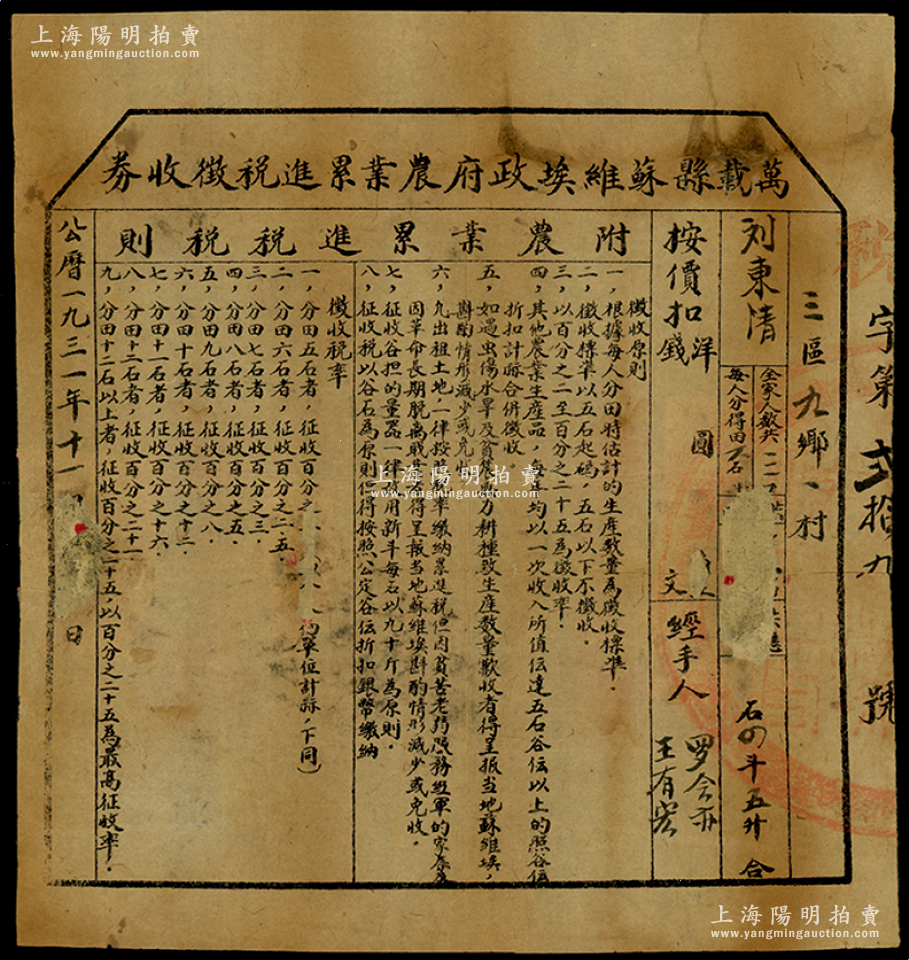 上海陽明拍賣
www.yangmingauction.com
萬載縣蘇維埃政府農業累進税徵收券
字第 弍拾九 號
三區九鄉、村
刘東清
全家人數共
每人分得田 石
石四斗五升 合
按價扣洋 圓
錢 文
經手人
王有
附農業累進税税則
徵收原則
一，根據每人分田時估計的生産數量為徵收標準．
二，徵收標準以五石起碼，五石以下不徵收．
三，以百分之二至百分之二十五為徵收率．
四，其他農業生産品，每年均以一次收入所值伝達五石谷伝以上的照谷伝
折扣計祘合併徵收．
五，如遇虫傷水旱及貧農 力耕種致生産數量歉收者得呈报当地蘇維埃，
斟酌情形減少或免收
六，凢出租土地一律按 率繳納累進税但因貧苦老弱服務紅軍的家
因革命長期脱离 得呈报当地蘇維埃斟酌情形減少或免收．
七，征收谷担的量器一律 用新斗每石以九十斤為原則．
八，征收税以谷石為原則但得按照公定谷伝折扣銀幣繳納
徵收税率
一，分田五石者，征收百分之 為單位計祘，下同）
二，分田六石者，征收百分之二．五．
三，分田七石者，征收百分之三．
四，分田八石者，征收百分之五
五，分田九石者，征收百分之八．
六，分田十石者，征收百分之十二．
七，分田十一石者，征收百分之十六．
八，分田十二石者，征收百分之二十一
九，分田十二石以上者，征收百分之二十五，以百分之二十五為最高征收率．
公曆一九三一年十一月 日
上海陽明拍賣
www.yangmingauction.com
上海陽明拍賣
www.yangmingauction.com